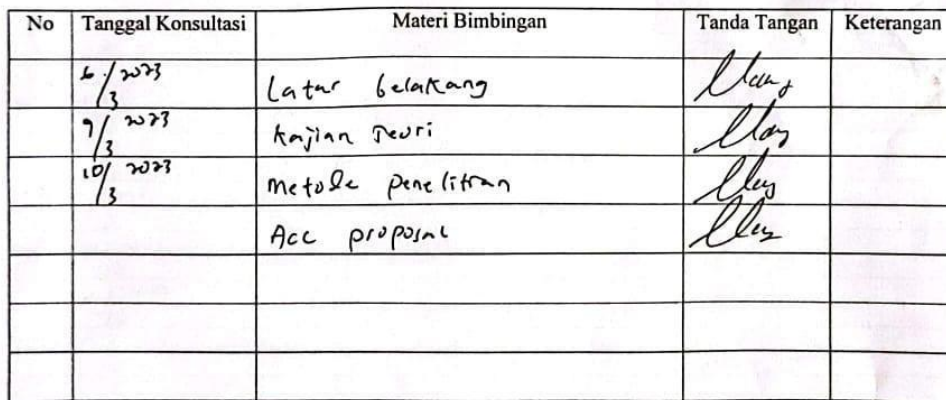 No Tanggal Konsultasi Materi Bimbingan Tanda Tangan Keterangan
6/3 2023 Latar belakang
9/3 2023 Kajian Teori
10/3 2023 Metode penelitian
Acc proposal